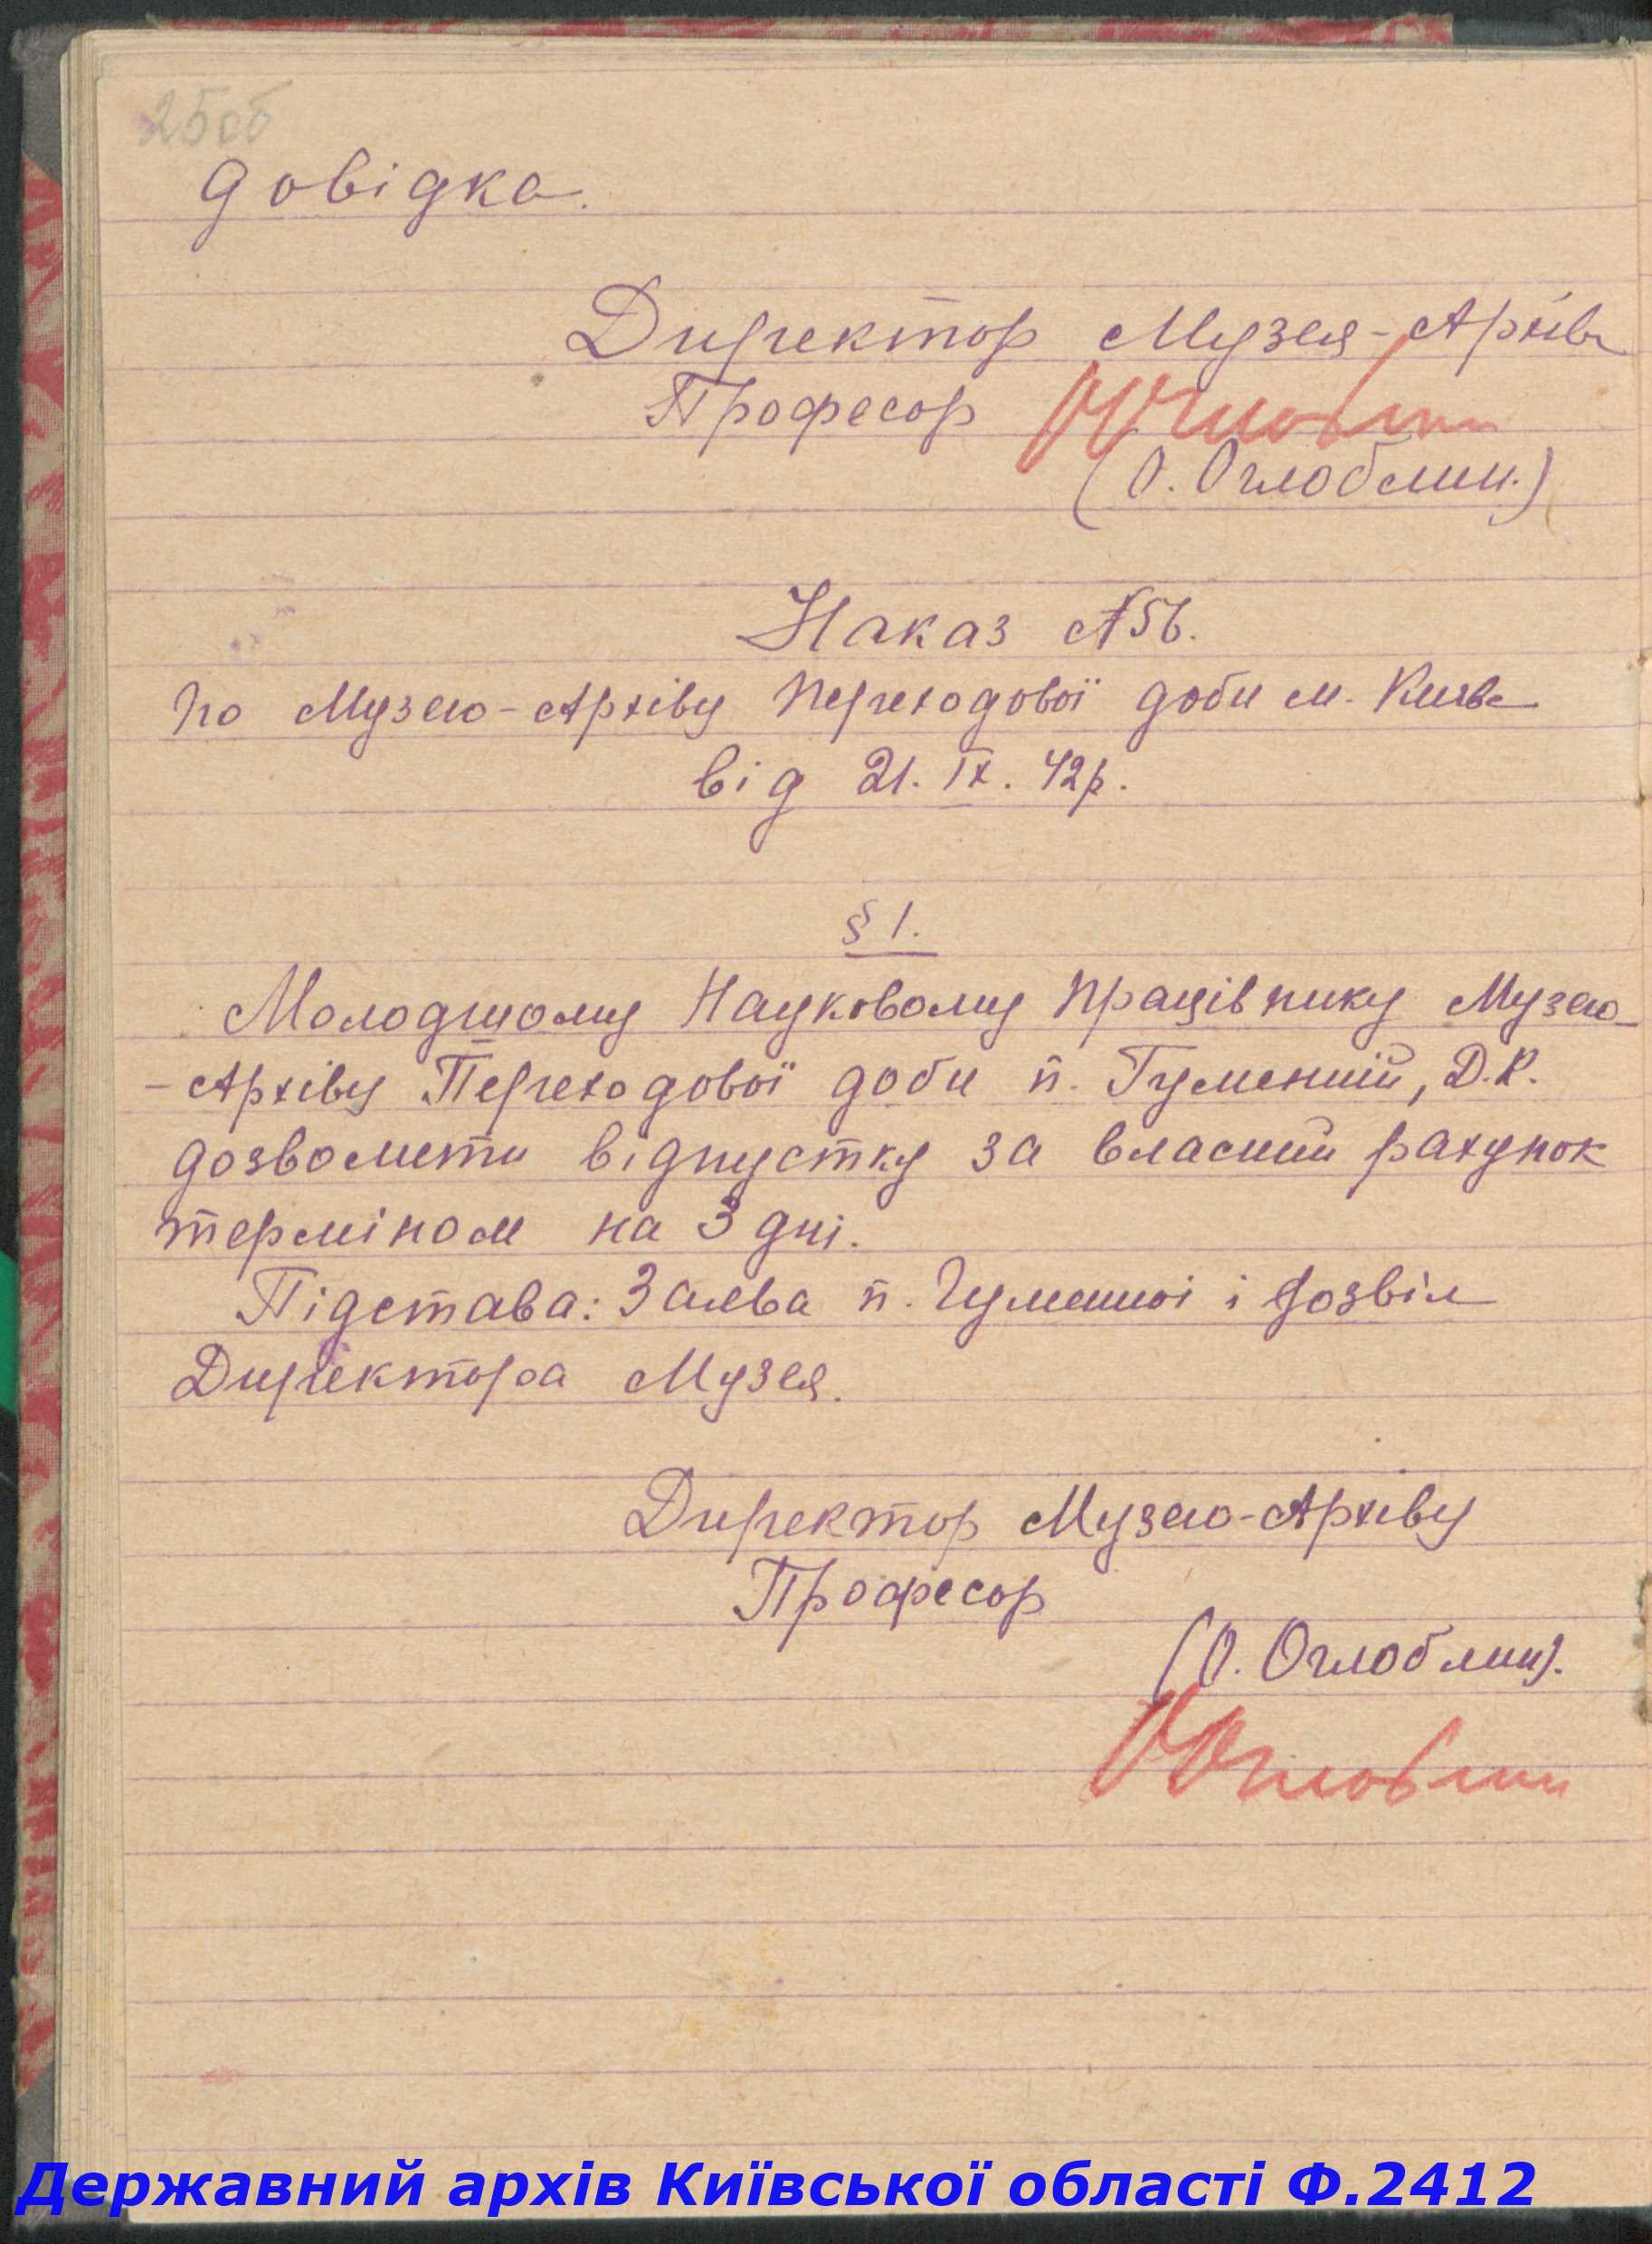 25об
довідка.
Директор Музея-Архіва
Професор ООглоблин
(О. Оглоблин.)
Наказ №56.
по Музею-Архіву Переходової доби м. Києва
від 21. IX. 42р.
§ 1.
Молодшому Науковому Працівнику Музею-
-Архіву Переходової доби п. Гуменній, Д.К.
дозволити відпустку за власний рахунок
терміном на 3 дні.
Підстава: Заява п. Гуменної і дозвіл
Директора Музея.
Директор Музею-Архіву
Професор
(О. Оглоблин).
ООглоблин
Державний архів Київської області Ф.2412